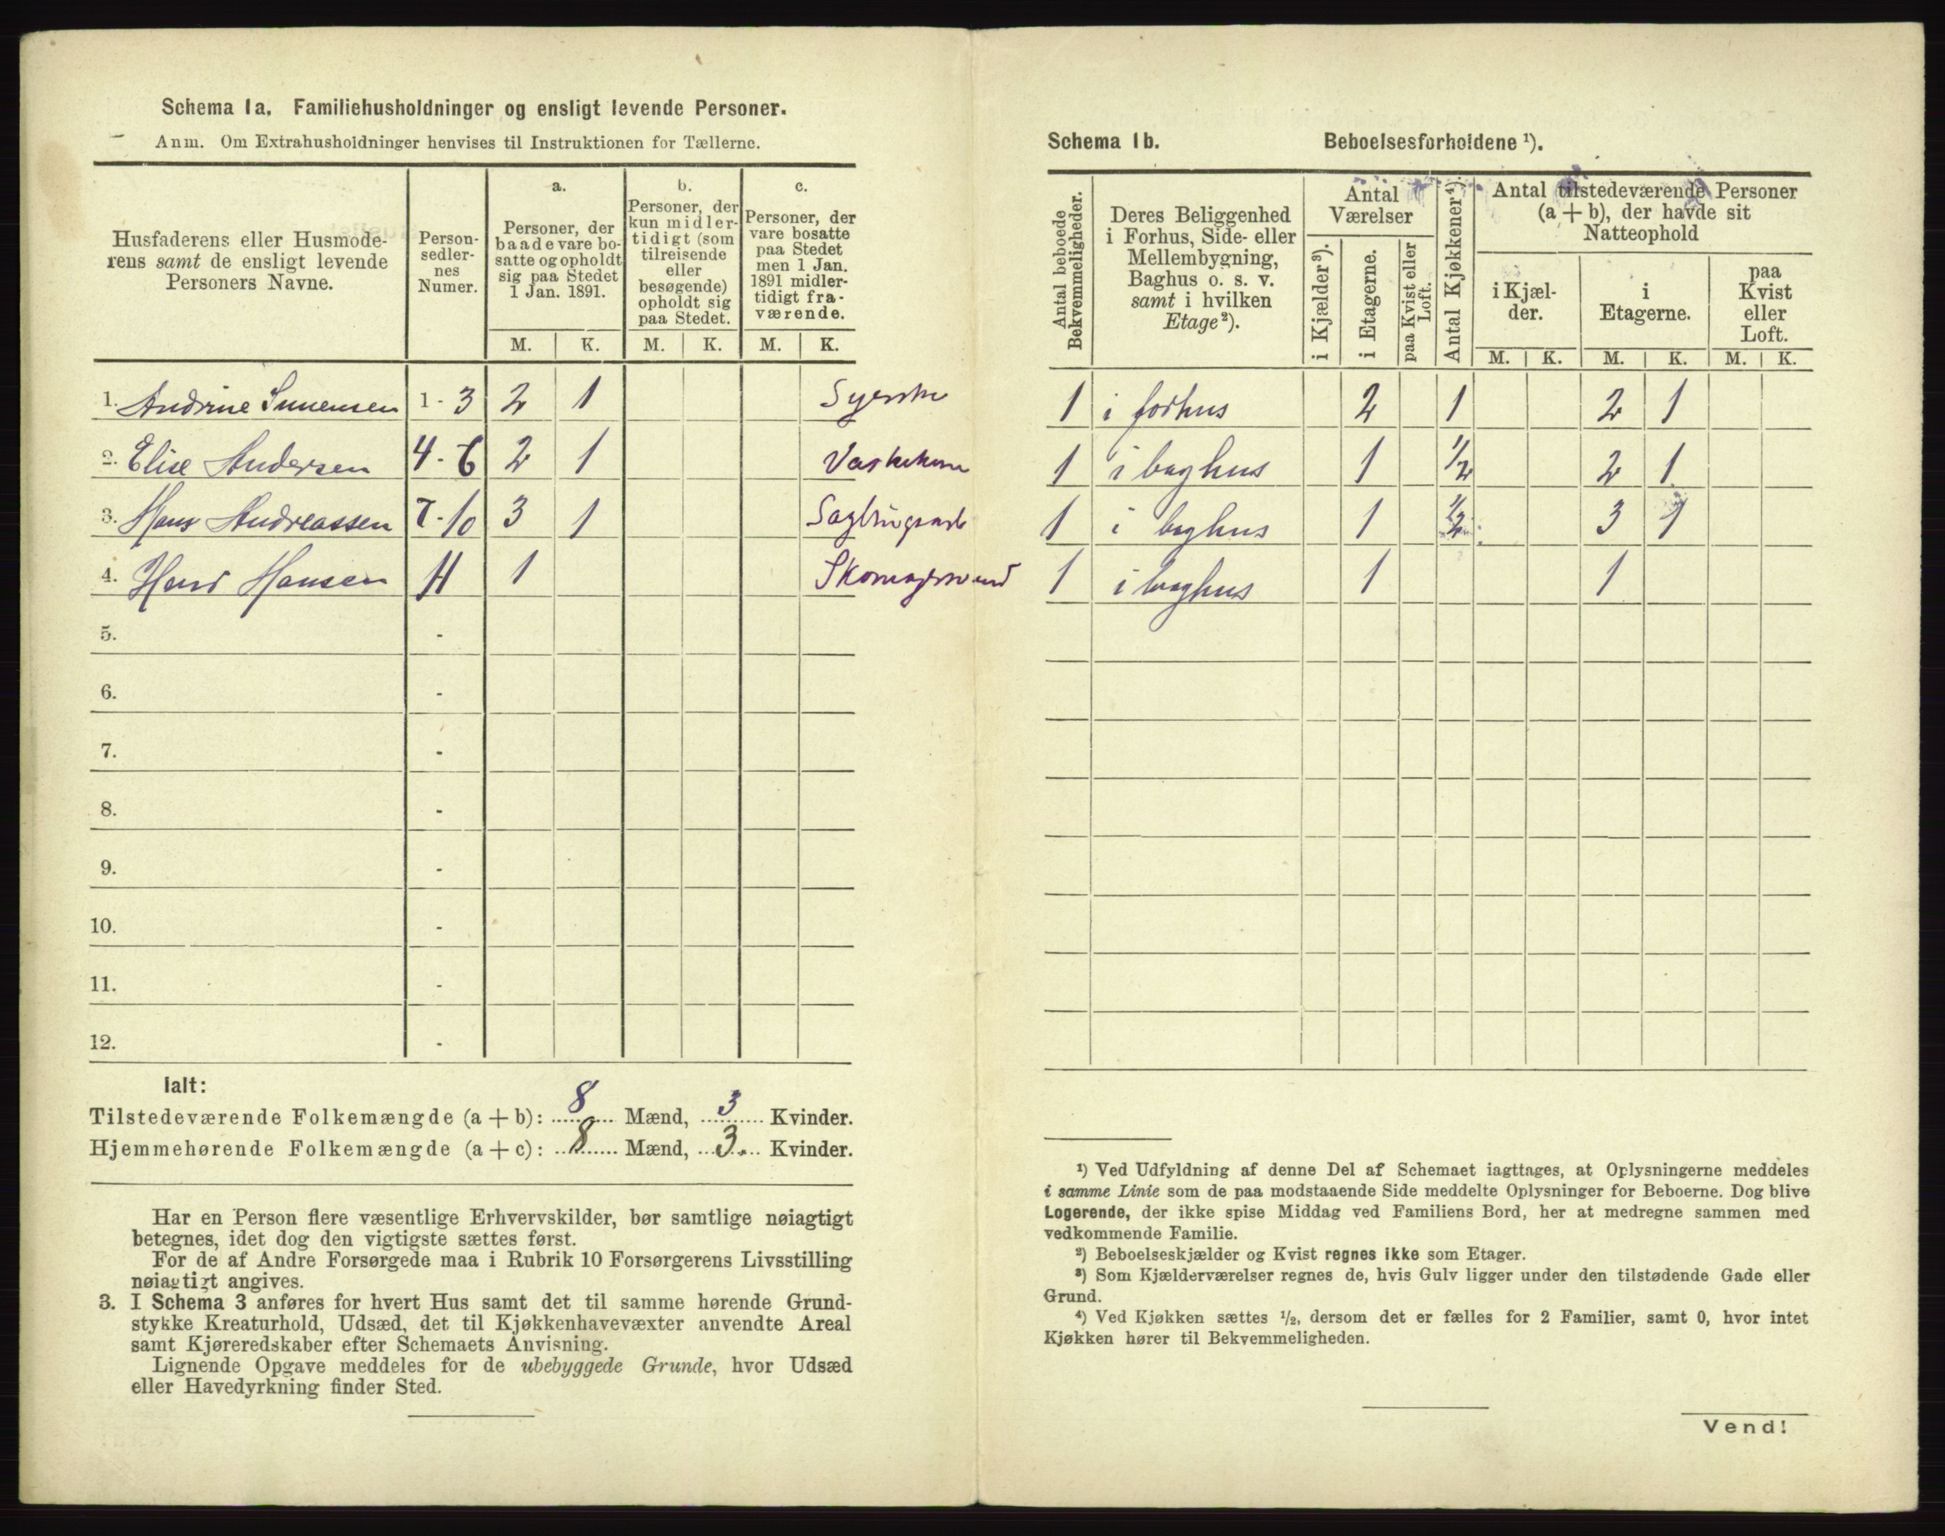 Schema 1a. Familiehusholdninger og ensligt levende Personer.
Anm. Om Extrahusholdninger henvises til Instruktionen for Tællerne.
Husfaderens eller Husmoderens samt de ensligt levende Personers Navne.
Personsedlernes Numer.
a. Personer, der baade vare bosatte og opholdt sig paa Stedet 1 Jan. 1891.
b. Personer, der kun midlertidigt (som tilreisende eller besøgende) opholdt sig paa Stedet.
c. Personer, der vare bosatte paa Stedet men 1 Jan. 1891 midlertidigt fraværende.
M. K. M. K. M. K.
1. Andrine 1 - 3 2 1 Syerske
2. Elise Andersen 4 - 6 2 1 Vaskekone
3. Hans Andreassen 7 - 10 3 1
4. Hans Hansen 11 1
5. -
6. -
7. -
8. -
9. -
10. -
11. -
12. -
Ialt:
Tilstedeværende Folkemængde (a + b): 8 Mænd, 3 Kvinder.
Hjemmehørende Folkemængde (a + c): 8 Mænd, 3. Kvinder.
Har en Person flere væsentlige Erhvervskilder, bør samtlige nøiagtigt
betegnes, idet dog den vigtigste sættes først.
For de af Andre Forsørgede maa i Rubrik 10 Forsørgerens Livsstilling
nøiagtigt angives.
3. I Schema 3 anføres for hvert Hus samt det til samme hørende Grund-
stykke Kreaturhold, Udsæd, det til Kjøkkenhavevæxter anvendte Areal
samt Kjøreredskaber efter Schemaets Anvisning.
Lignende Opgave meddeles for de ubebyggede Grunde, hvor Udsæd
eller Havedyrkning finder Sted.
Schema 1b. Beboelsesforholdene ¹).
Antal beboede Bekvemmeligheder.
Deres Beliggenhed i Forhus, Side- eller Mellembygning, Baghus o. s. v. samt i hvilken Etage ²).
Antal Værelser
i Kjælder ³).
i Etagerne.
paa Kvist eller Loft.
Antal Kjøkkener ⁴).
Antal tilstedeværende Personer (a + b), der havde sit Natteophold
i Kjælder.
i Etagerne.
paa Kvist eller Loft.
M. K. M. K. M. K.
1 i forhus 2 1 2 1
1 i baghus 1 1/2 2 1
1 i baghus 1 1/2 3 1
1 i baghus 1 1
¹) Ved Udfyldning af denne Del af Schemaet iagttages, at Oplysningerne meddeles
i samme Linie som de paa modstaaende Side meddelte Oplysninger for Beboerne. Dog blive
Logerende, der ikke spise Middag ved Familiens Bord, her at medregne sammen med
vedkommende Familie.
²) Beboelseskjælder og Kvist regnes ikke som Etager.
³) Som Kjælderværelser regnes de, hvis Gulv ligger under den tilstødende Gade eller
Grund.
⁴) Ved Kjøkken sættes ½, dersom det er fælles for 2 Familier, samt 0, hvor intet
Kjøkken hører til Bekvemmeligheden.
Vend!